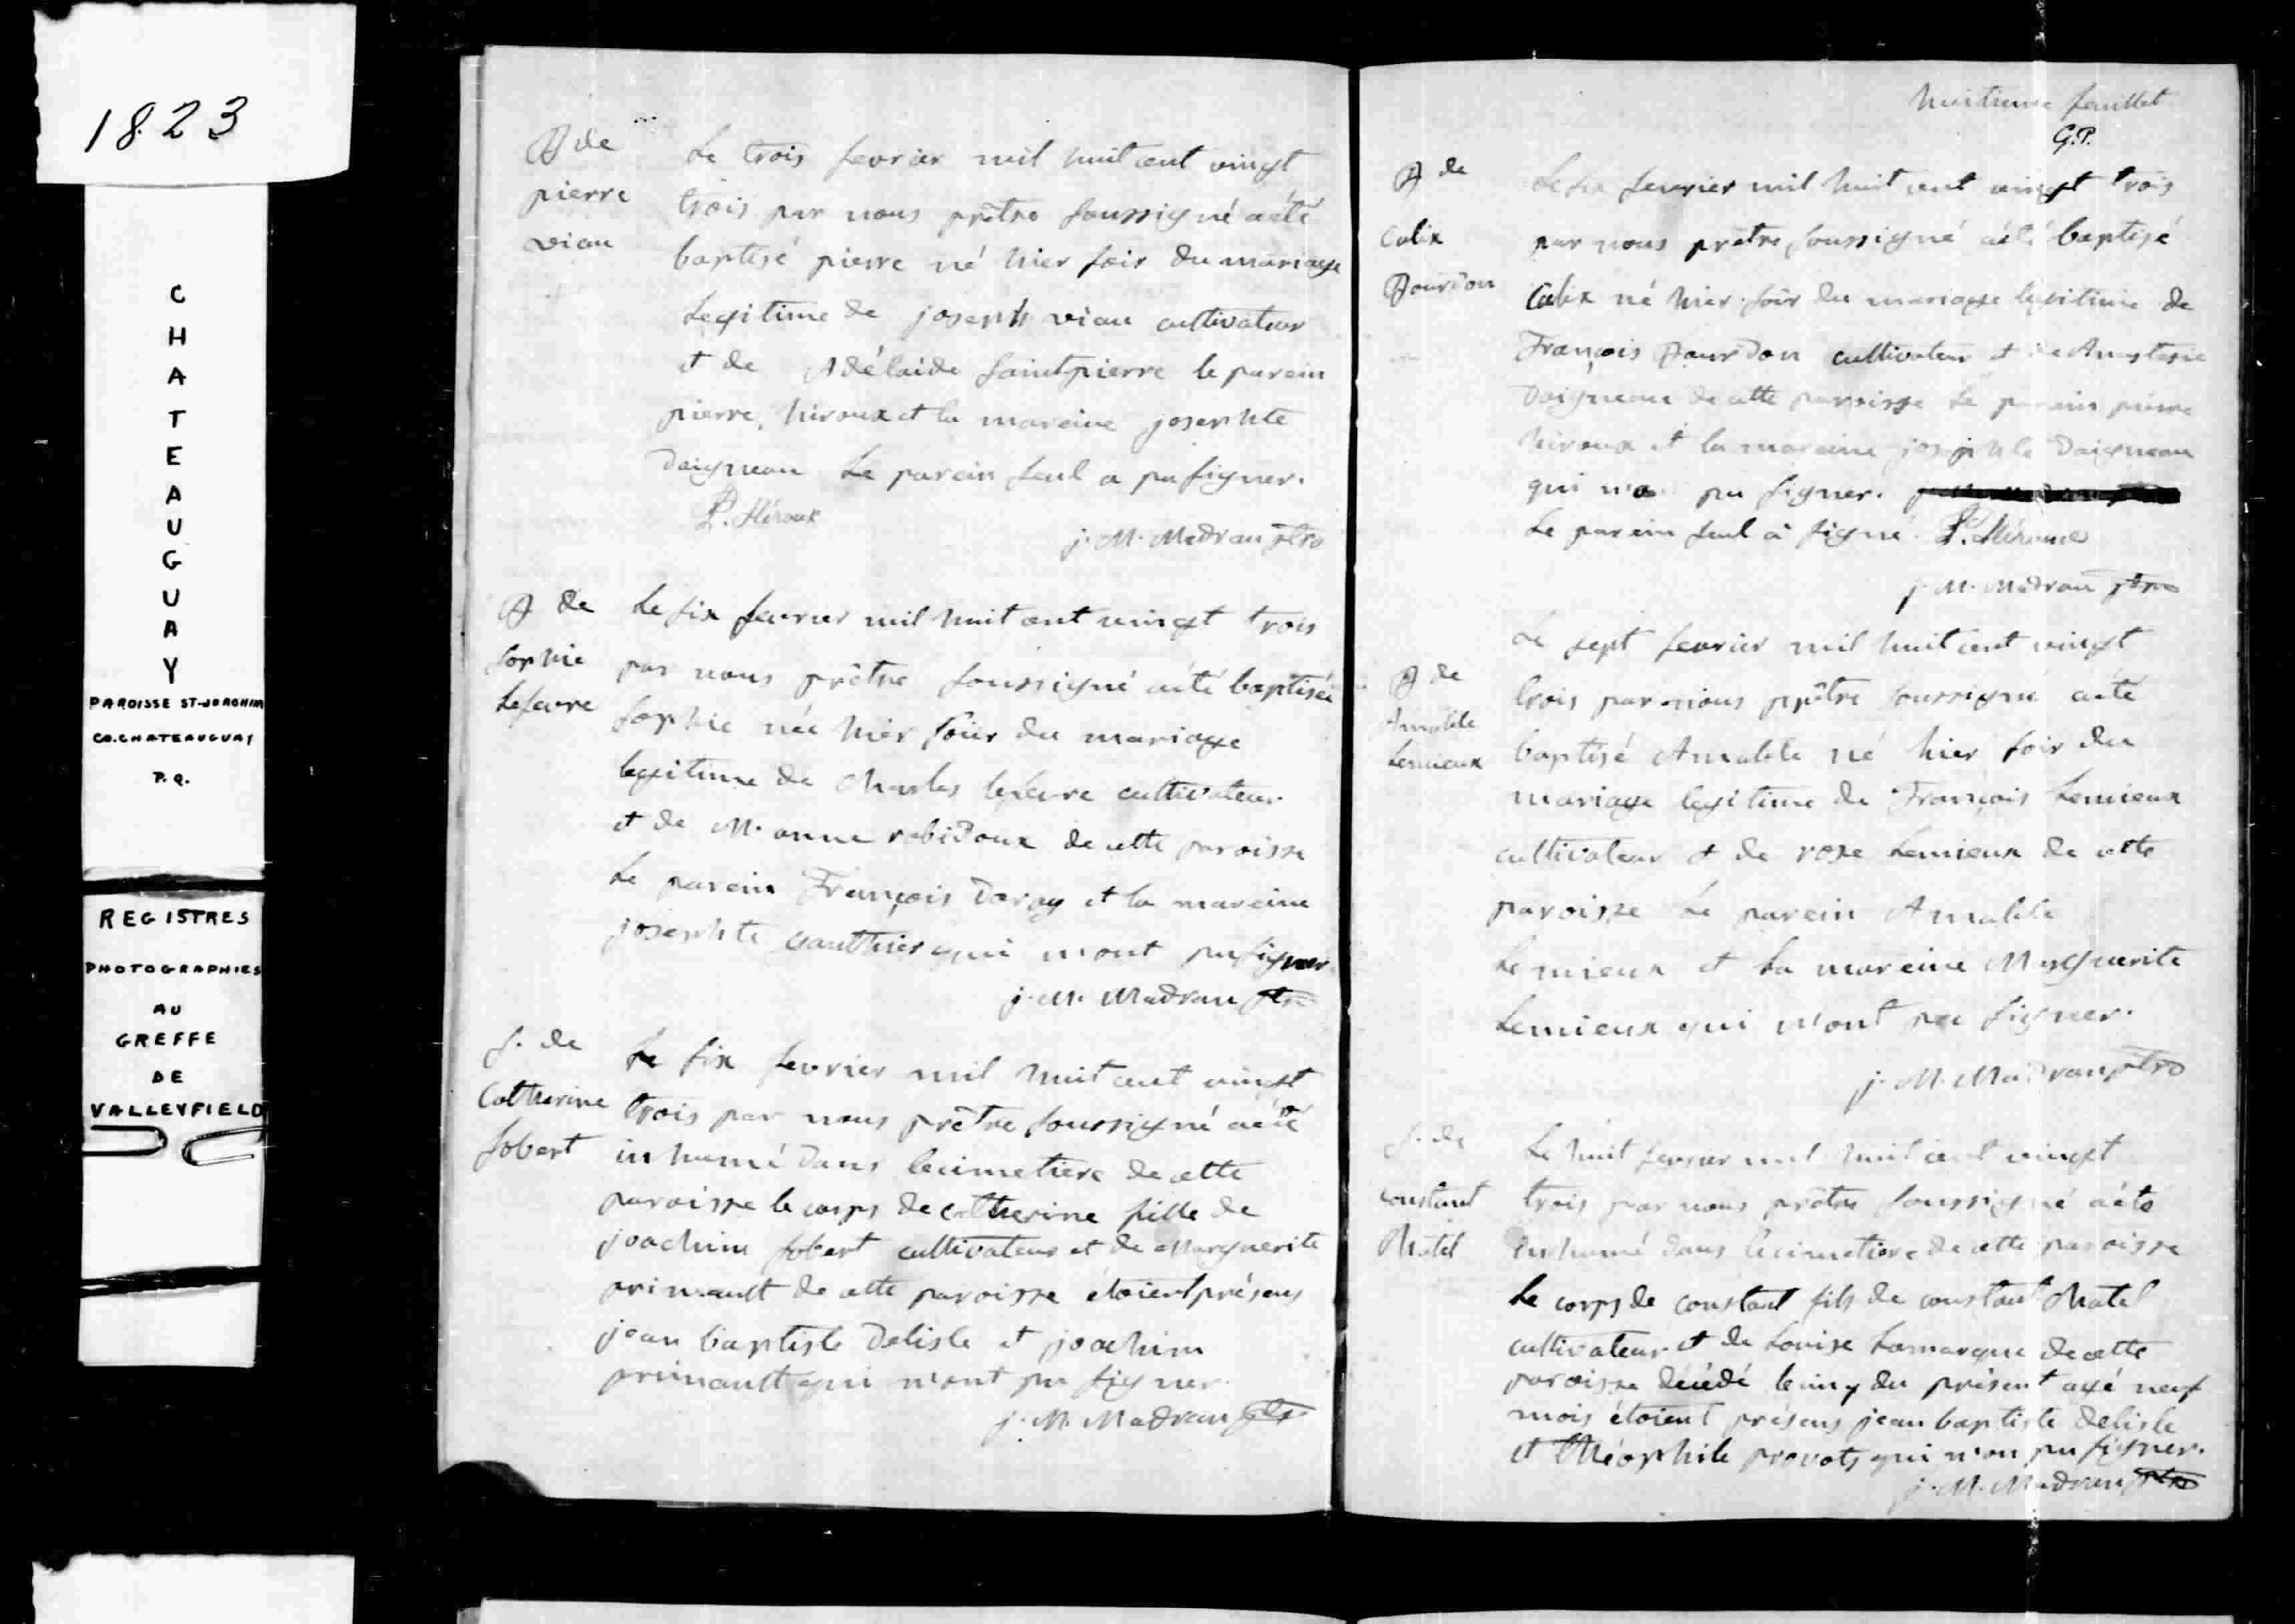 1823
C
H
A
T
E
A
U
G
U
A
Y
PAROISSE ST-JOACHIM
CO. CHATEAUGUAY
P.Q.
REGISTRES
PHOTOGRAPHIES
AU
GREFFE
DE
VALLEYFIELD
B de
pierre
viau
Le trois fevrier mil huit cent vingt
trois par nous prêtre soussigné a été
baptisé pierre né hier soir du mariage
Legitime de joseph viau cultivateur
et de Adélaide saintpierre le parein
pierre hiroux et la mareine josephte
Daigneau Le parein seul a pu signer.
P. Héroux
j. M. Madran ptre
B de
sophie
Lefevre
Le six fevrier mil huit cent vingt trois
par nous prêtre soussigné a été baptisée
sophie née hier soir du mariage
legitime de Charles lefevre cultivateur
et de M. anne robidoux de cette paroisse
Le parein François Doray et la mareine
josephte gauthier qui n'ont pu signer.
j. M. Madran ptre
S. de
Catherine
sobert
Le six fevrier mil huit cent vingt
trois par nous prêtre soussigné a été
inhumé dans le cimetiere de cette
paroisse le corps de catherine fille de
joachim sobert cultivateur et de Marguerite
primault de cette paroisse étoient présens
jean baptiste Delisle et joachim
primault qui n'ont pu signer.
j. M. Madran ptre
huitieme feuillet
G.P.
B de
Calix
Bourdon
Le six fevrier mil huit cent vingt trois
par nous prêtre soussigné a été baptisé
Calix né hier soir du mariage legitime de
François Bourdon cultivateur et de Anastasie
Daigneau de cette paroisse Le parein pierre
hiroux et la mareine josephte Daigneau
qui n'a pu signer.
Le parein seul a signé. P. Héroux
j. M. Madran ptre
B de
Amable
Lemieux
Le sept fevrier mil huit cent vingt
trois par nous prêtre soussigné a été
baptisé Amable né hier soir du
mariage legitime de François Lemieux
cultivateur et de rose Lemieux de cette
paroisse Le parein Amable
Lemieux et La mareine Marguerite
Lemieux qui n'ont pu signer.
j. M. Madran ptre
S. de
constant
Chatel
Le huit fevrier mil huit cent vingt
trois par nous prêtre soussigné a été
inhumé dans le cimetiere de cette paroisse
Le corps de constant fils de constant Chatel
cultivateur et de Louise Lamarque de cette
paroisse décédé le cinq du présent agé neuf
mois étoient présens jean baptiste delisle
et théophile provots qui n'on pu signer.
j. M. Madran ptre